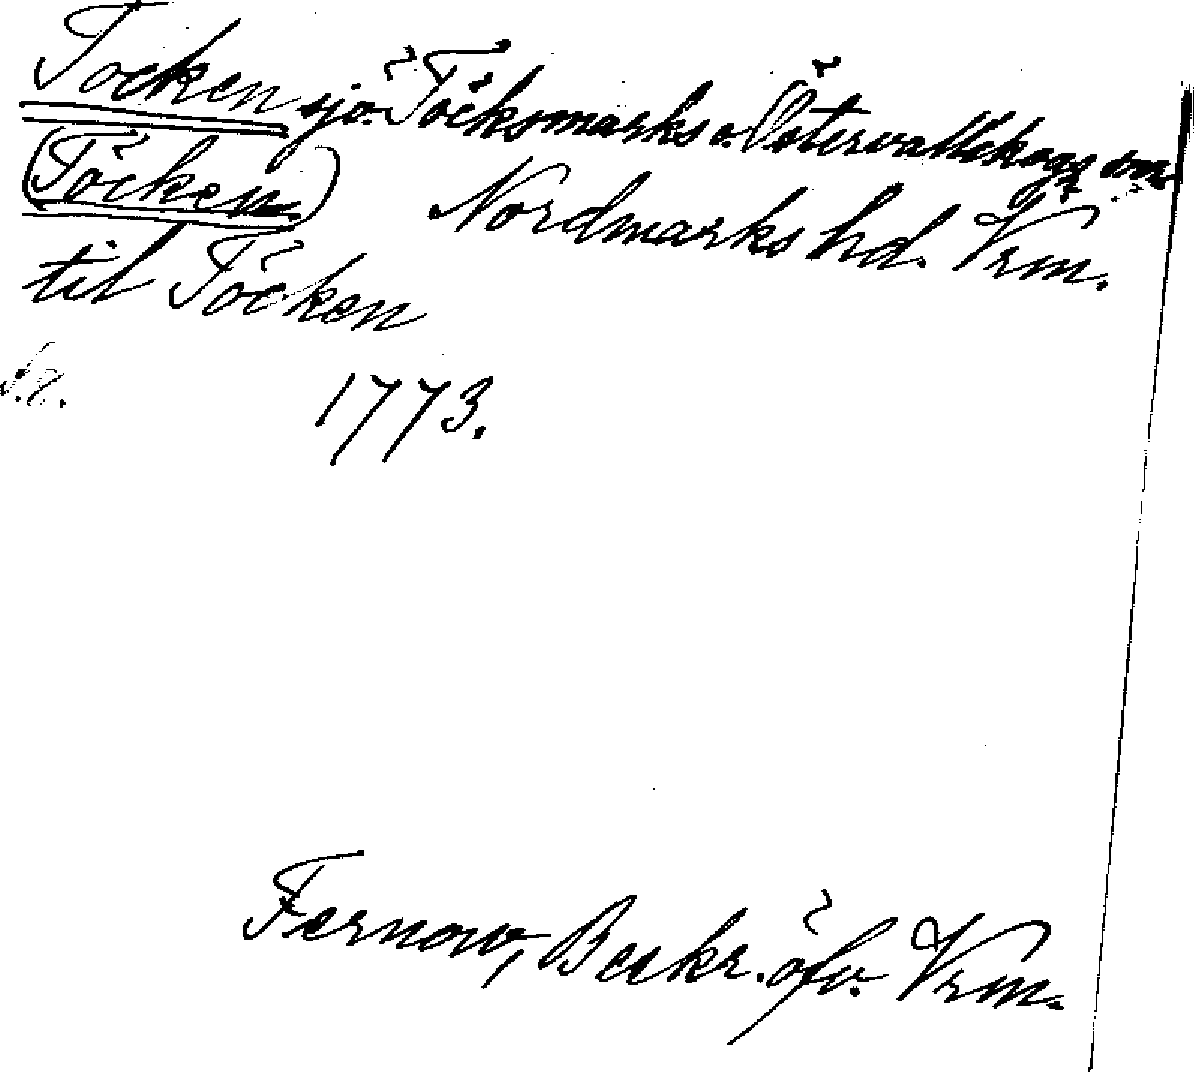 Tocken sjö. Töcksmarks o. Östervallskogs snr
(Töcken)
Nordmarks hd. Vrm.
til Töcken
1773.
Fernow, Beskr. öfv. Vrm.